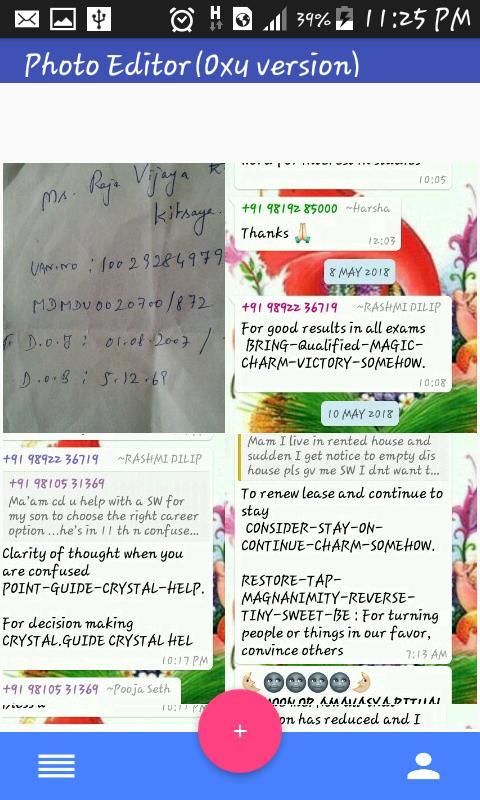 39% 11:25 PM
Photo Editor(Oxy version)
Ms. Raja Vijaya K
Kitsaya.
UAN.NO : 10023284979
MDMDU0020700/872
D.O.J : 01.08.2007 /
D.O.B : 5.12.69
10:05
+91 98192 85000 ~Harsha
Thanks 🙏
12:03
8 MAY 2018
+91 98922 36719 ~RASHMI DILIP
For good results in all exams
BRING-Qualified-MAGIC-
CHARM-VICTORY-SOMEHOW.
10:08
10 MAY 2018
+91 98922 36719 ~RASHMI DILIP
+91 98105 31369
Ma'am cd u help with a SW for
my son to choose the right career
option ...he's in 11 th n confuse...
Clarity of thought when you
are confused
POINT-GUIDE-CRYSTAL-HELP.
For decision making
CRYSTAL.GUIDE CRYSTAL HEL
10:17 PM
+91 98105 31369 ~Pooja Seth
10:17 PM
Mam I live in rented house and
sudden I get notice to empty dis
house pls gv me SW I dnt want t...
To renew lease and continue to
stay
CONSIDER-STAY-ON-
CONTINUE-CHARM-SOMEHOW.
RESTORE-TAP-
MAGNANIMITY-REVERSE-
TINY-SWEET-BE : For turning
people or things in our favor,
convince others
7:13 AM
🌛🌚🌚🌚🌚🌛
MOON OR AMAVASYA RITUAL
on has reduced and I
+